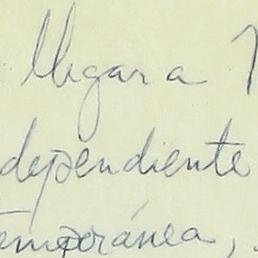 llegar a
dependiente
temporánea,